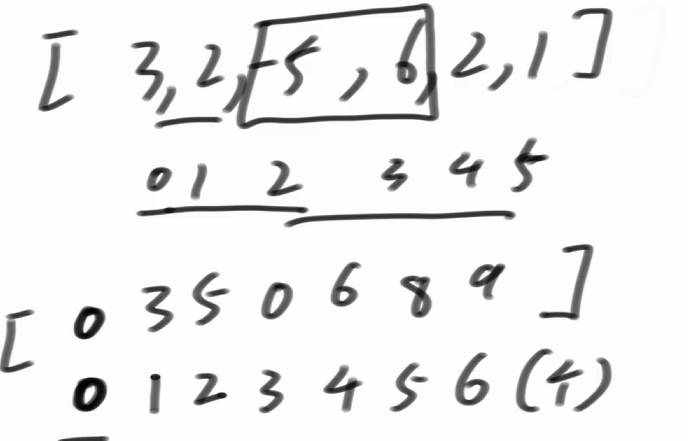 [ 3, 2, -5, 6, 2, 1 ]
0 1 2 3 4 5
[ 0 3 5 0 6 8 9 ]
0 1 2 3 4 5 6 (4)